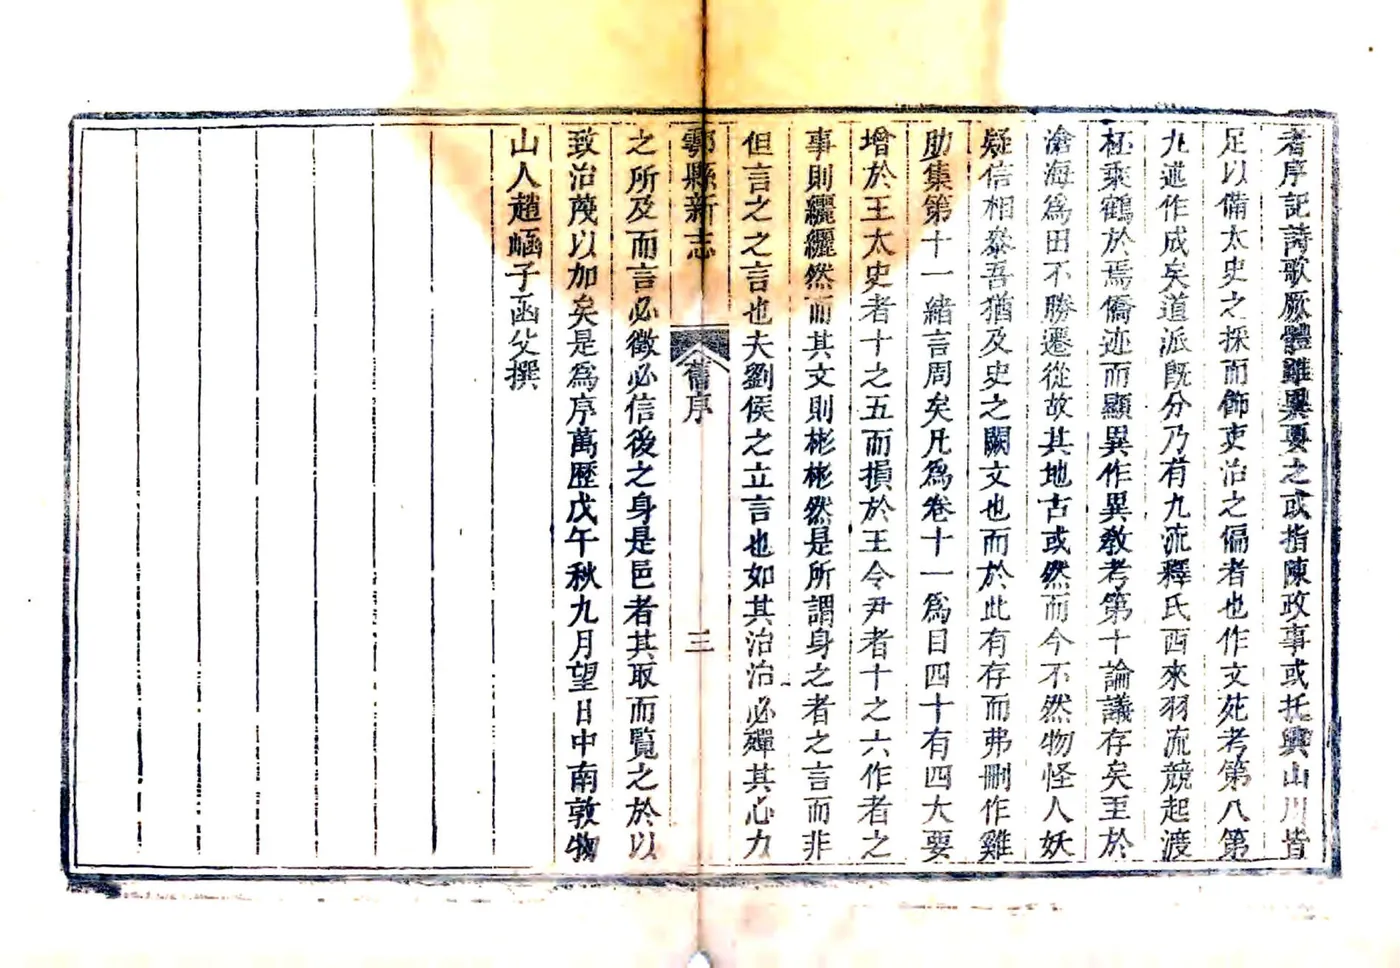 者序記詩歌厥體雖異要之或指陳政事或托興山川皆
足以備太史之採而飾吏治之偏者也作文苑考第八第
九述作成矣道派既分乃有九流釋氏西來羽流競起渡
杯乘鶴於焉僑迹而顯異作異教考第十論議存矣至於
滄海為田不勝遷從故其地古或然而今不然物怪人妖
疑信相叅吾猶及史之闕文也而於此有存而弗刪作雞
肋集第十一緒言周矣凡為卷十一為目四十有四大要
增於王太史者十之五而損於王令尹者十之六作者之
事則纚纚然而其文則彬彬然是所謂身之者之言而非
但言之之言也夫劉侯之立言也如其治治必殫其心力
鄠縣新志
舊序
三
之所及而言必徵必信後之身是邑者其取而覧之於以
致治茂以加矣是為序萬歷戊午秋九月望日中南敦物
山人趙崡子函父撰